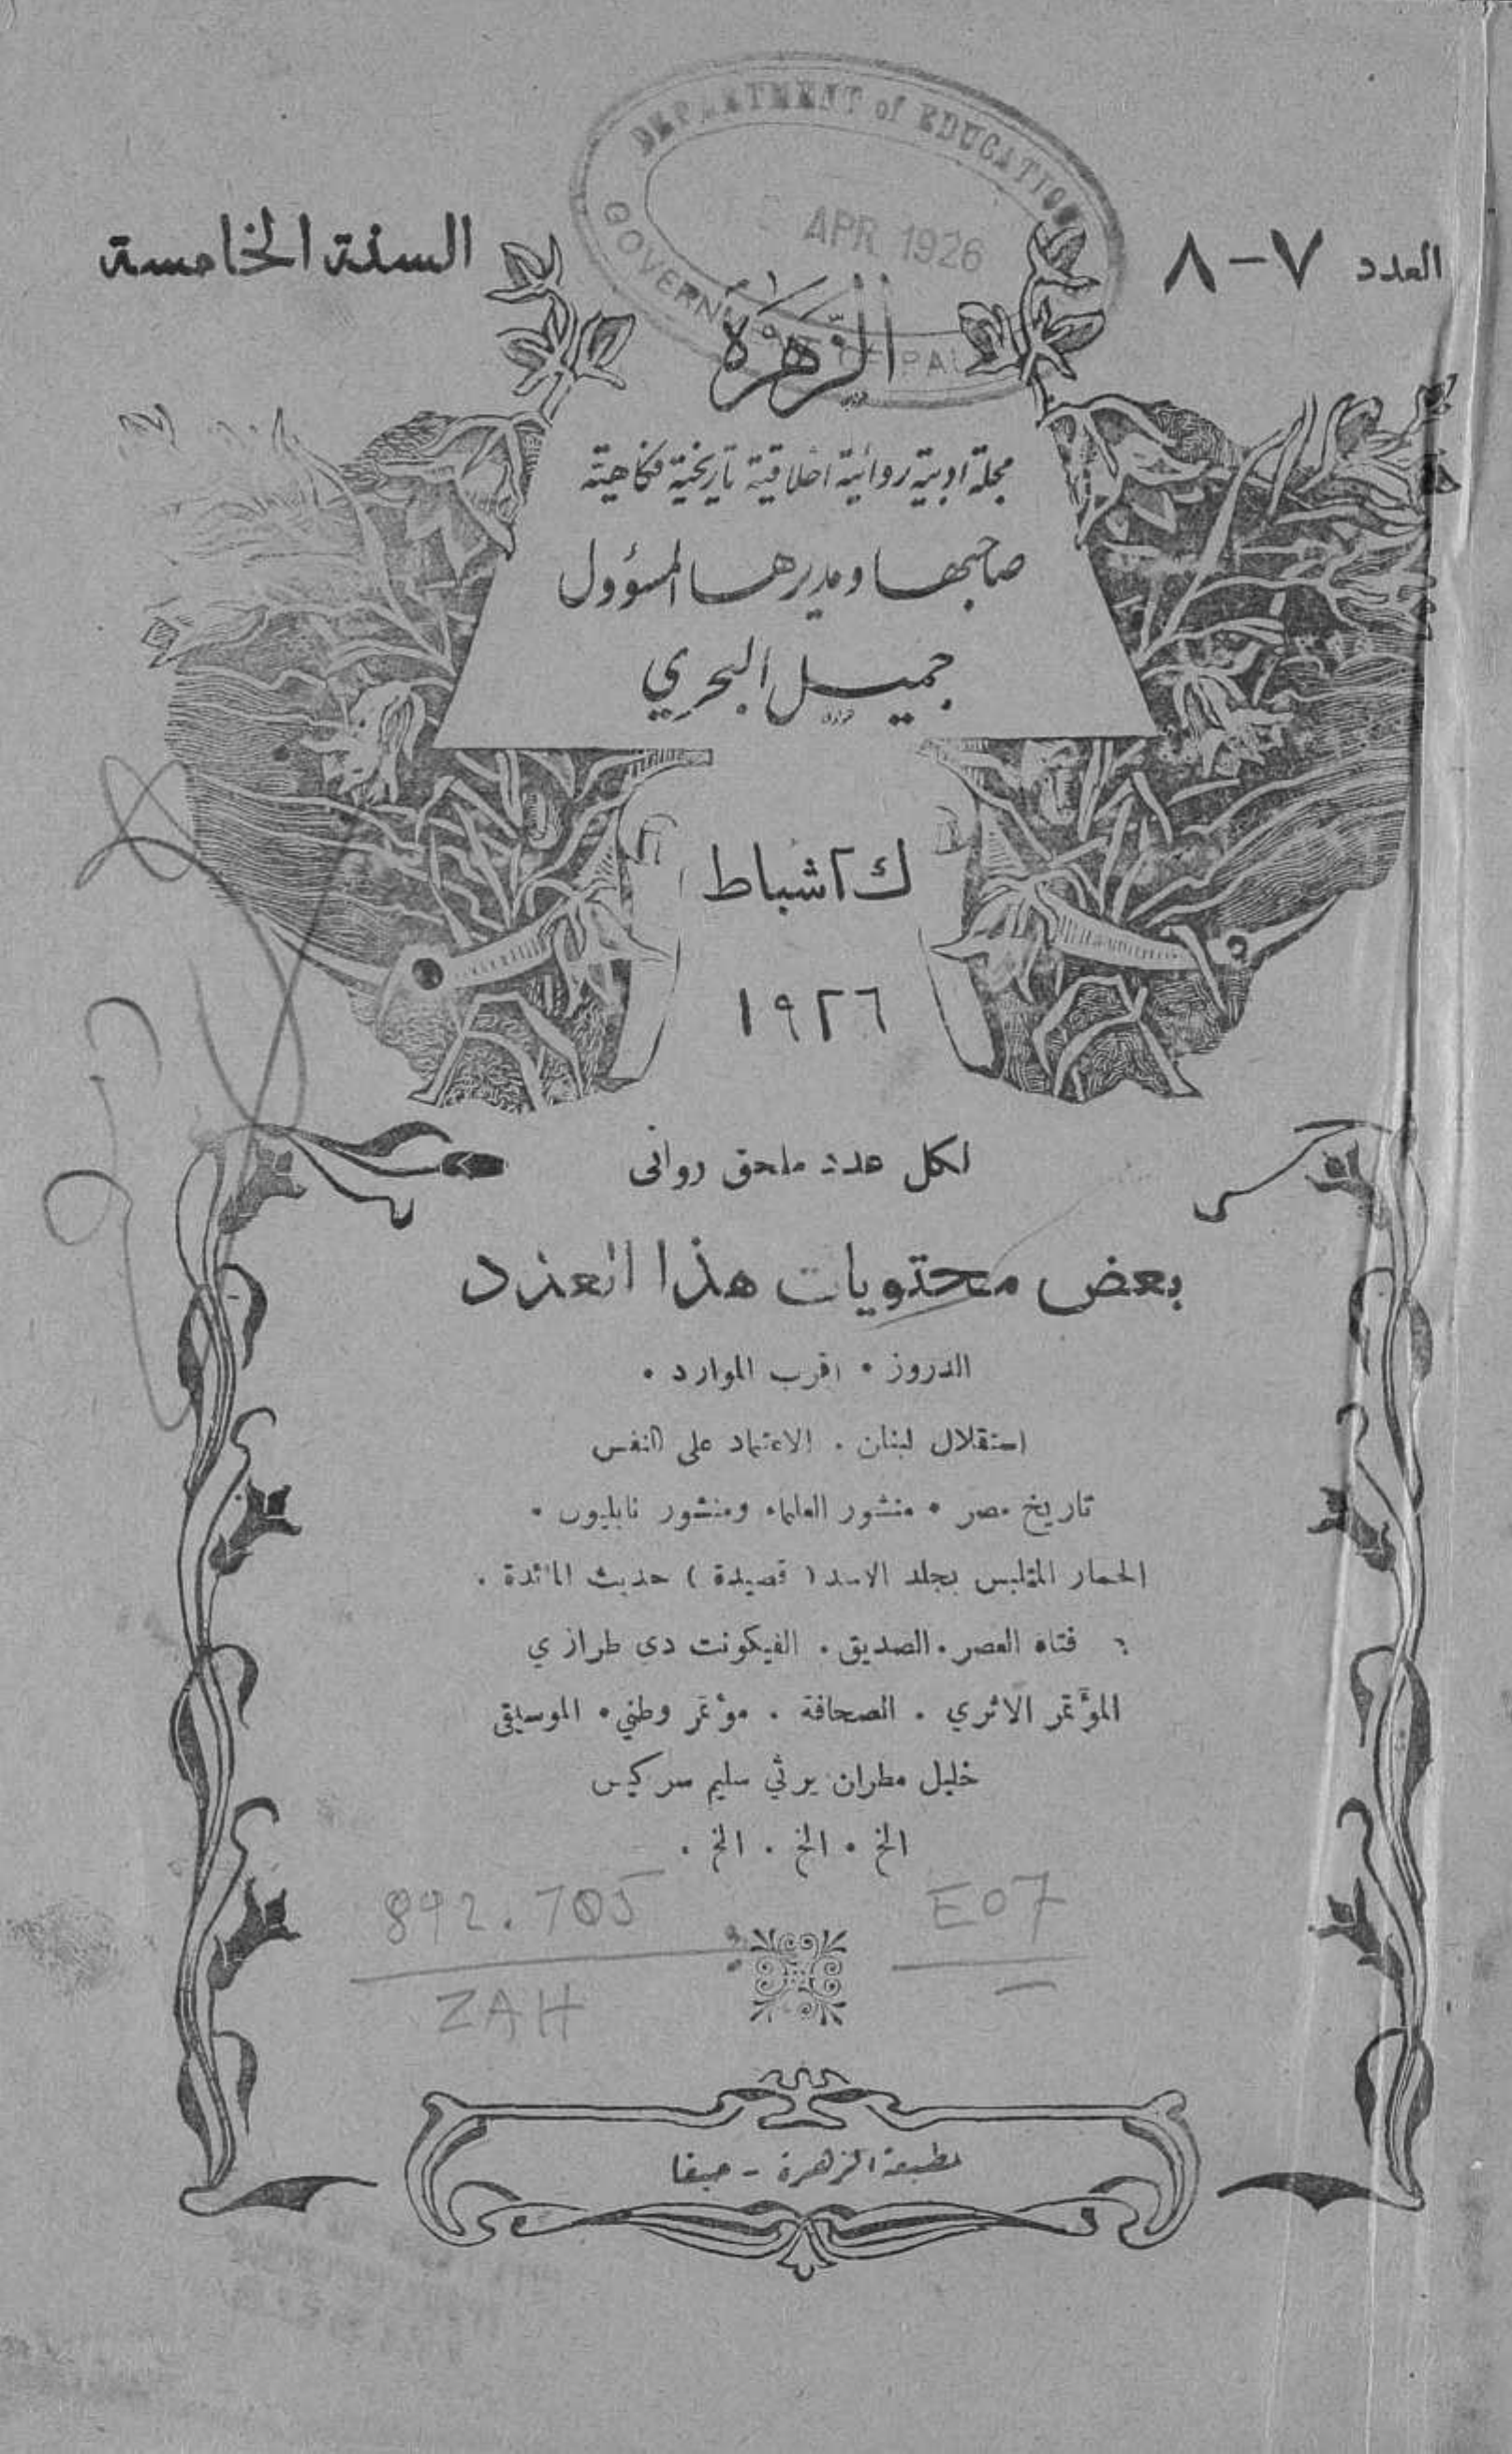 DEPARTMENT of EDUCATION
APR 1926
GOVERNMENT OF PAL
العدد ٧-٨
السنة الخامسة
الزهرة
مجلة ادبية روائية اخلاقية تاريخية فكاهية
صاحبها ومديرها المسؤول
جميل البحري
ك٢ شباط
١٩٢٦
لكل عدد ملحق روائى
بعض محتويات هذا العدد
الدروز • اقرب الموارد •
استقلال لبنان . الاعتماد على النفس
تاريخ مصر • منشور العلماء ومنشور نابليون •
الحمار المتلبس بجلد الاسد ( قصيدة ) حديث المائدة .
فتاة العصر . الصديق . الفيكونت دى طرازي
المؤتمر الاثري . الصحافة . مؤتمر وطني • الموسيقى
خليل مطران يرثي سليم سركيس
الخ • الخ . الخ .
892.705 E07
ZAH
مطبعة الزهرة - حيفا